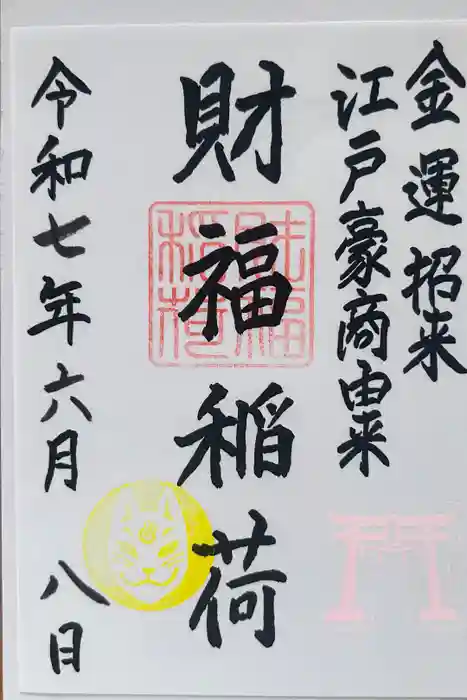 金運招来
江戸豪商由来
財福稲荷
財福稲荷
令和七年六月八日